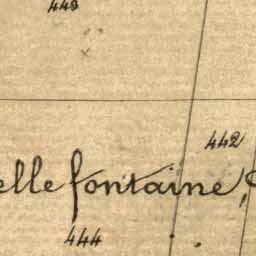 442
elle fontaine,
444